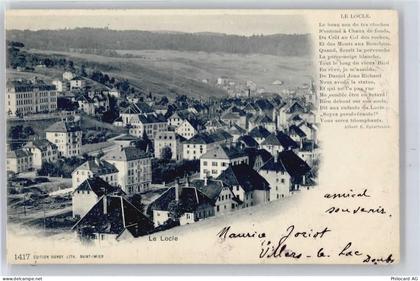 LE LOCLE.
Le beau son de tes cloches
S'entend à Chaux de fonds,
Du Crêt au Col des roches,
Et des Monts aux Bouclons.
Quand, fleurit la pervenche
La pervenche blanche
Tout le long du vieux Bied
En rêve, je m'assieds.
De Daniel Jean Richard
Je vois ta statue,
Et qui ne l'a pas vue
Me semble être en retard!
Bien debout sur son socle,
Il dit aux enfants du Locle:
„Soyez persévérants
Vous serez triomphants.
amical
souvenir
Maurice Joriot
Villers-le-Lac
Doubs
Le Locle
1417 EDITION BURGY, LITH. SAINT-IMIER